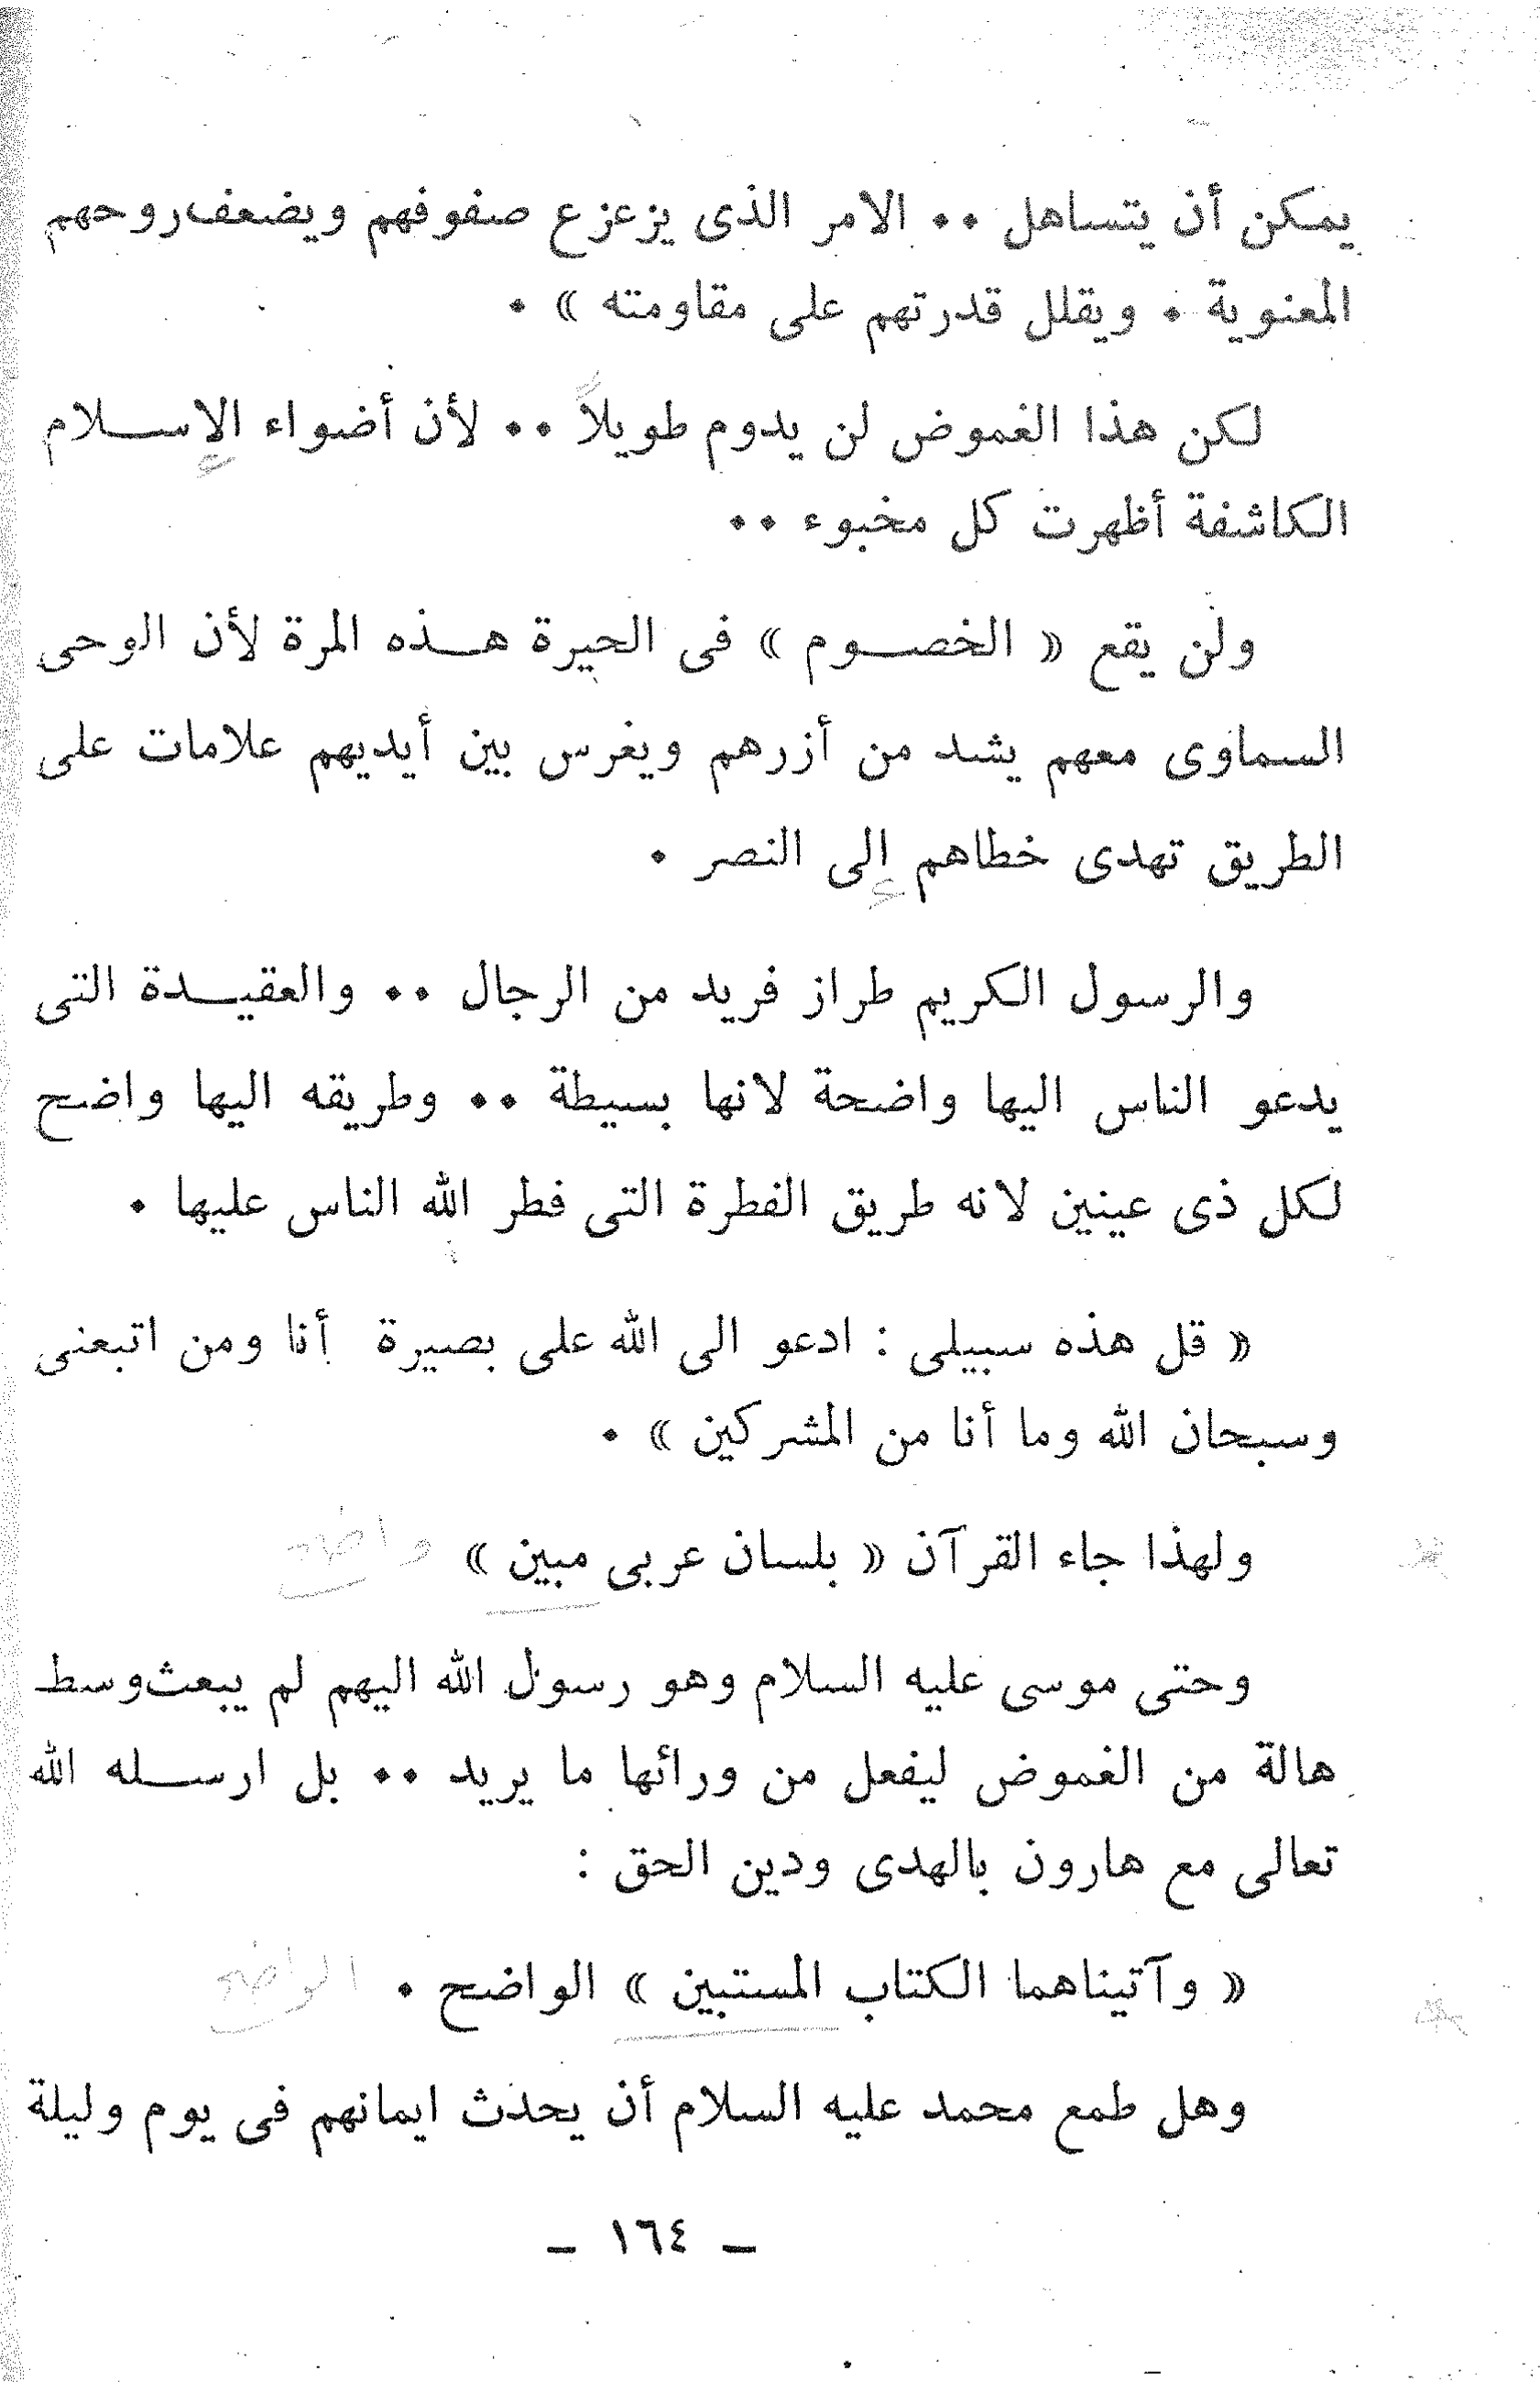 يمكن أن يتساهل .. الامر الذى يزعزع صفوفهم ويضعف روحهم
المعنوية . ويقلل قدرتهم على مقاومته » .
لكن هذا الغموض لن يدوم طويلاً .. لأن أضواء الإسلام
الكاشفة أظهرت كل مخبوء ..
ولن يقع « الخصوم » فى الحيرة هذه المرة لأن الوحى
السماوى معهم يشد من أزرهم ويغرس بين أيديهم علامات على
الطريق تهدى خطاهم إلى النصر .
والرسول الكريم طراز فريد من الرجال .. والعقيدة التى
يدعو الناس اليها واضحة لانها بسيطة .. وطريقه اليها واضح
لكل ذى عينين لانه طريق الفطرة التى فطر الله الناس عليها .
« قل هذه سبيلى : ادعو الى الله على بصيرة أنا ومن اتبعنى
وسبحان الله وما أنا من المشركين » .
ولهذا جاء القرآن « بلسان عربى مبين » واضح
وحتى موسى عليه السلام وهو رسول الله اليهم لم يبعث وسط
هالة من الغموض ليفعل من ورائها ما يريد .. بل ارسله الله
تعالى مع هارون بالهدى ودين الحق :
« وآتيناهما الكتاب المستبين » الواضح . الواضح
وهل طمع محمد عليه السلام أن يحدث ايمانهم فى يوم وليلة
– ١٦٤ –